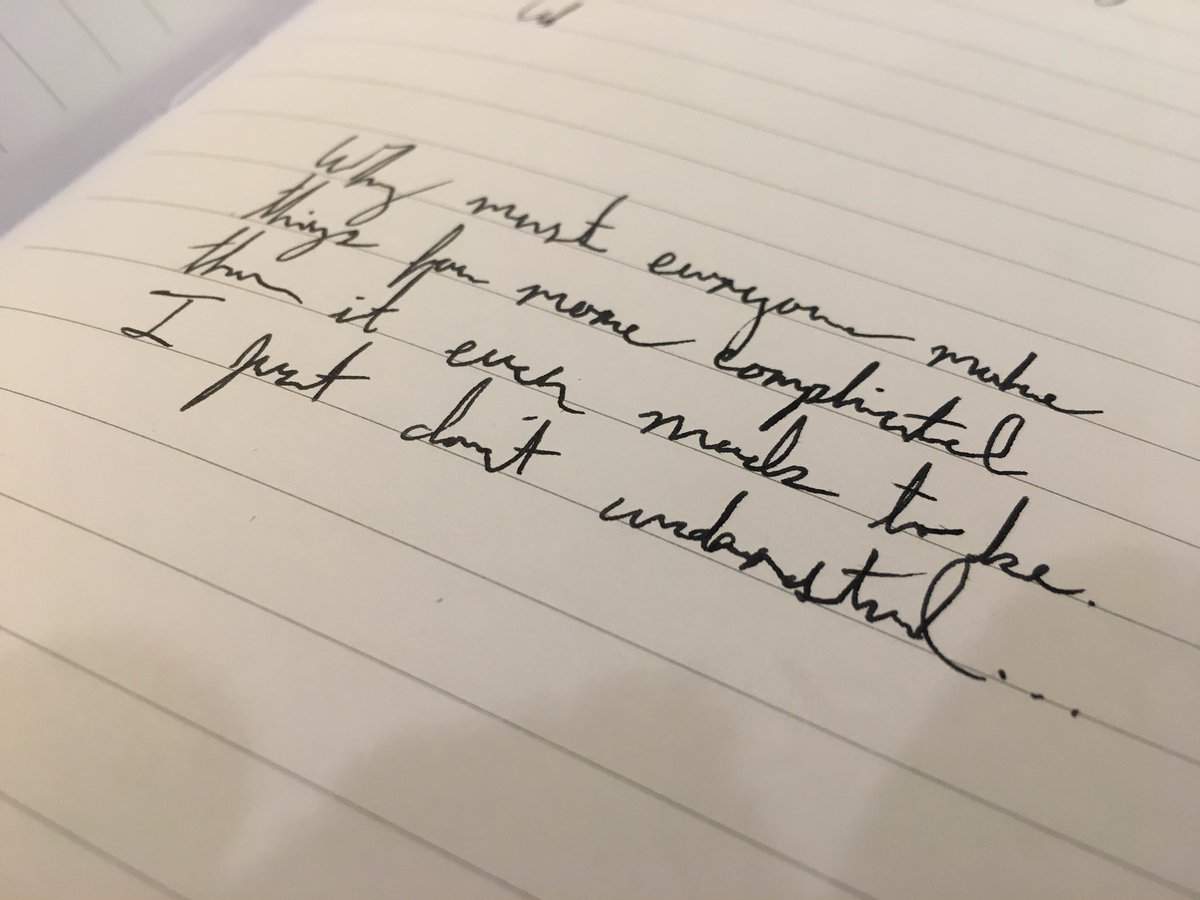 Why must everyone make
things far more complicated
than it ever needs to be.
I just don't understand...